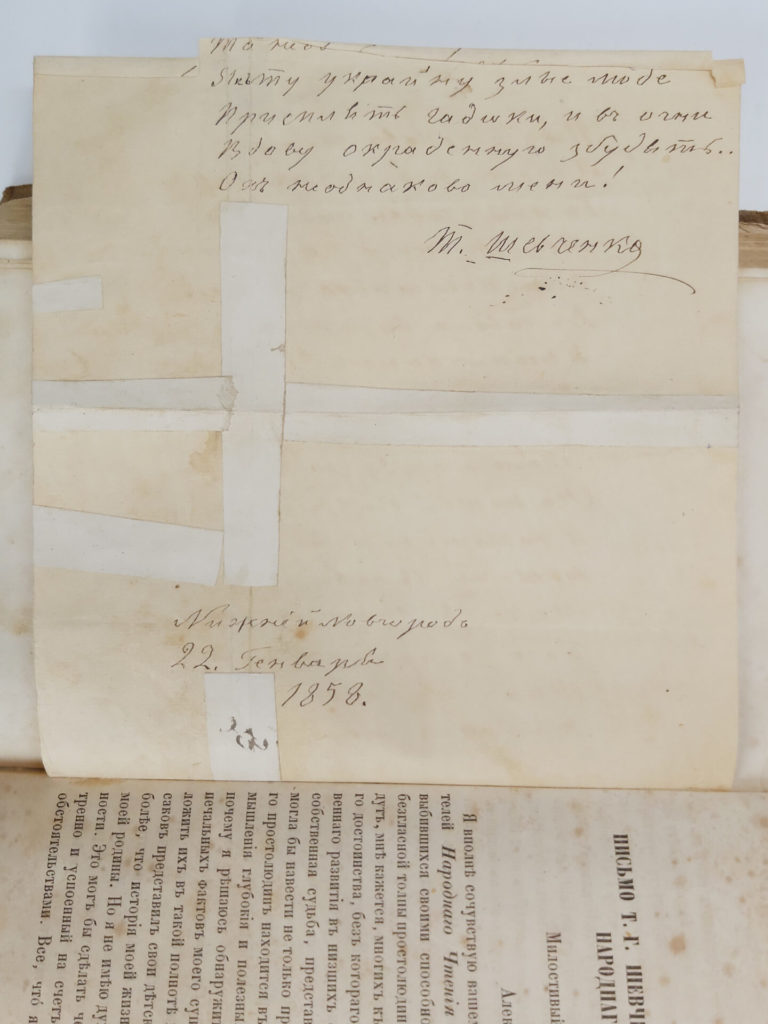 Якъту украйну злые люде
Присплять
и въ
Вдову окраденную збудыть..
Охъ неоднаково мени!
Т. Шевченко
Нижней Новгородъ
22. Генваря
1858.
ПИСЬМО Т. Г. ШЕВЧ
НАРОДНАГ
Милостивый
Алек
Я вполнѣ сочувствую вашем
телей Народнаго Чтенія
выбившихся своими способно
безгласной толпы простолюдин
дутъ, мнѣ кажется, многихъ къ
го достоинства, безъ котораго
веннаго развитія въ низшихъ
собственная судьба, представ
могла бы навести не только пр
го простолюдинъ находится въ
мышленія глубокія и полезны
почему я рѣшаюсь обнаружит
печальныхъ фактовъ моего сущ
ложить ихъ въ такой полнотѣ
саковъ представилъ свои дѣтск
болѣе, что исторія моей жизн
моей родины. Но я не имѣю ду
ности. Это могъ бы сдѣлать че
тренно и успоенный на счетъ
обстоятельствами. Все, что я